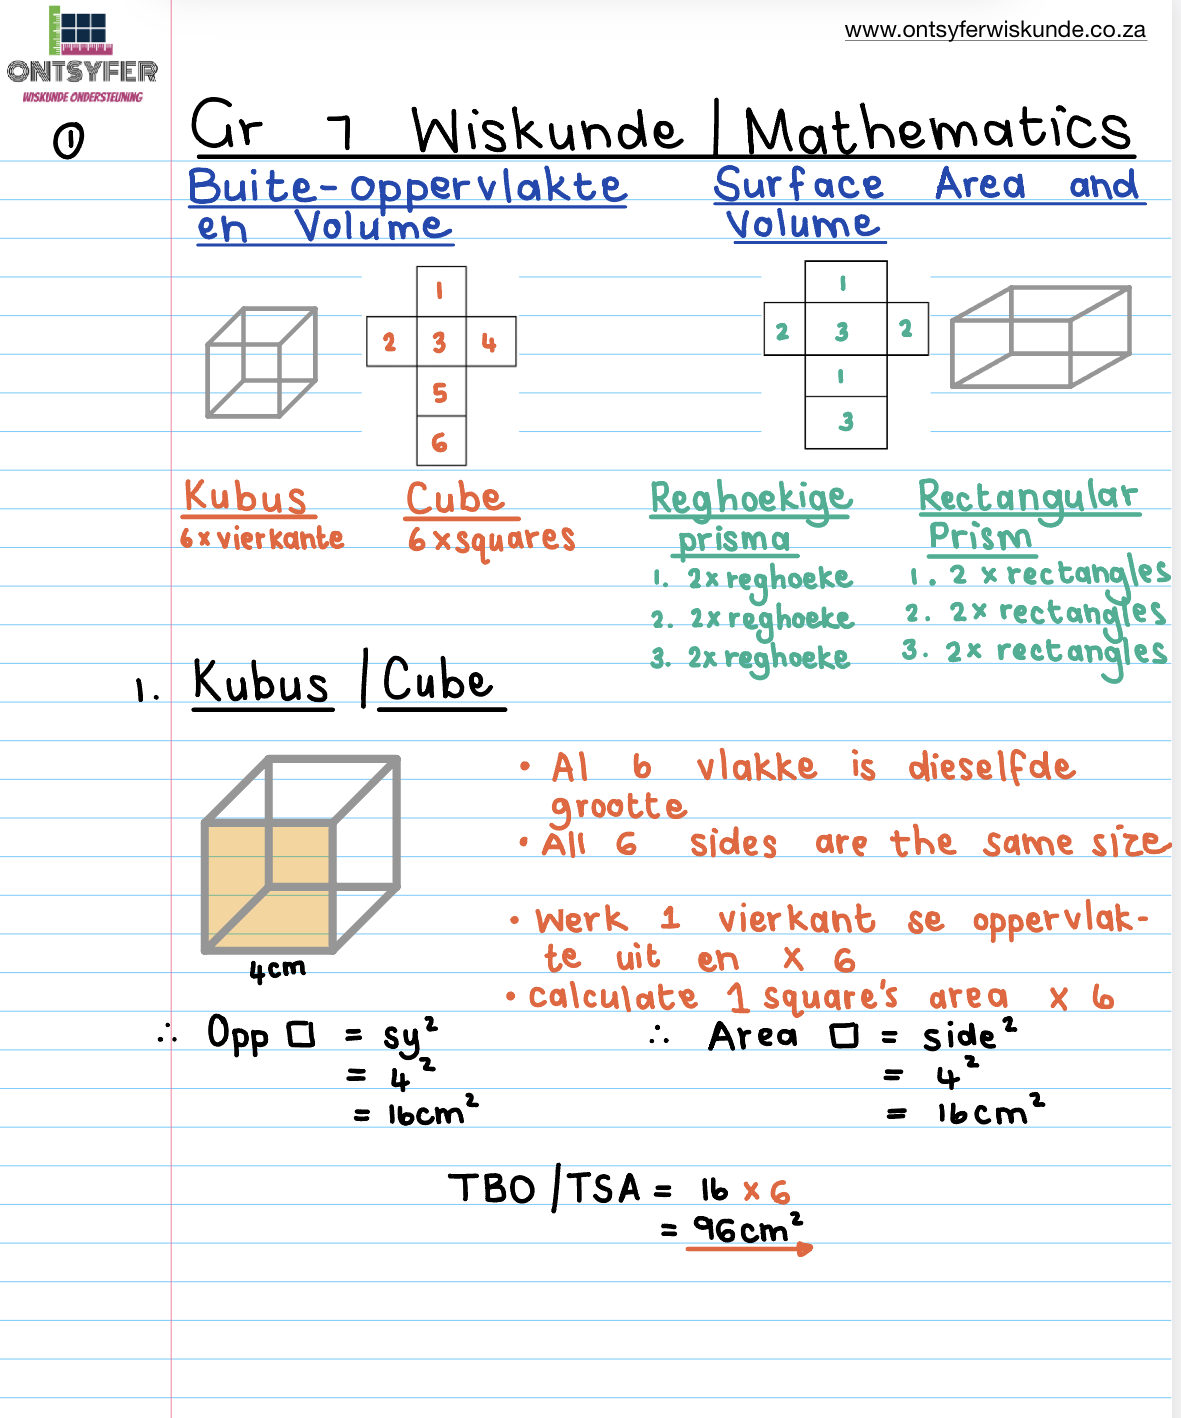 www.ontsyferwiskunde.co.za
ONTSYFER
WISKUNDE ONDERSTEUNING
1
Gr 7 Wiskunde | Mathematics
Buite-oppervlakte
en Volume
Surface Area and
Volume
1
2 3 4
5
6
1
2 3 2
1
3
Kubus
6 x vierkante
Cube
6 x squares
Reghoekige
prisma
1. 2x reghoeke
2. 2x reghoeke
3. 2x reghoeke
Rectangular
Prism
1. 2 x rectangles
2. 2x rectangles
3. 2x rectangles
1. Kubus / Cube
• Al 6 vlakke is dieselfde
grootte
• All 6 sides are the same size
• Werk 1 vierkant se oppervlak-
te uit en x 6
• Calculate 1 square's area x 6
4cm
∴ Opp □ = sy²
= 4²
= 16cm²
∴ Area □ = side²
= 4²
= 16cm²
TBO / TSA = 16 x 6
= 96cm²